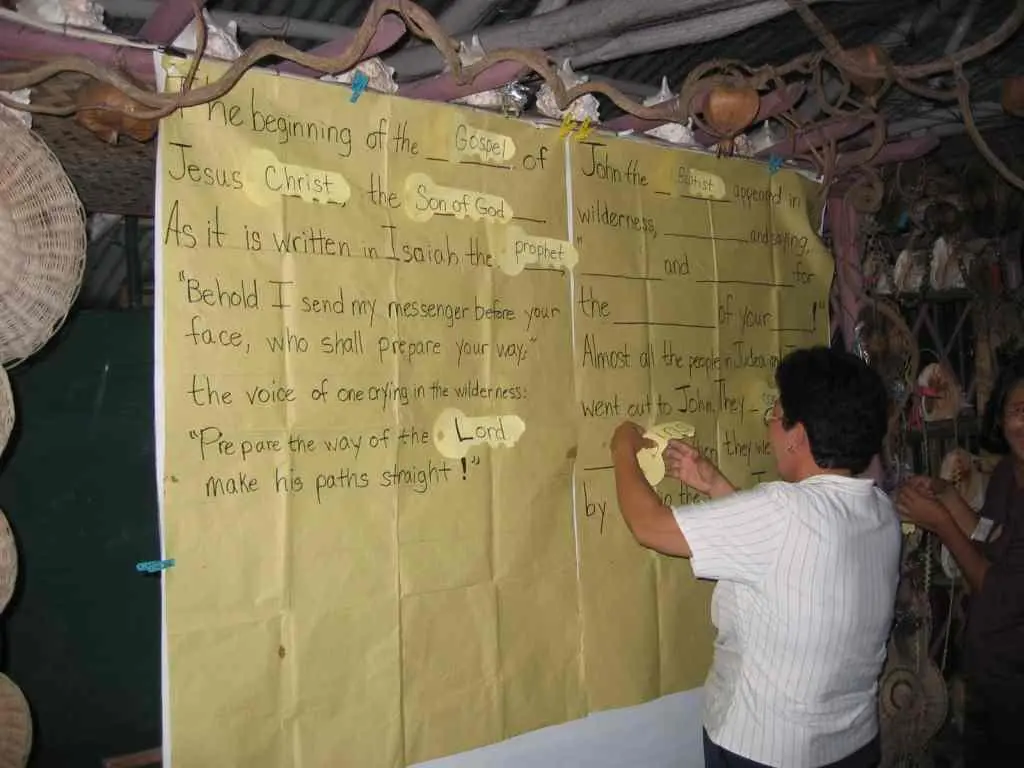 The beginning of the Gospel of
Jesus Christ, the Son of God
As it is written in Isaiah the prophet
"Behold I send my messenger before your
face, who shall prepare your way;"
the voice of one crying in the wilderness:
"Prepare the way of the Lord
make his paths straight!"
John the Baptist appeared in
wilderness, ________ and saying,
"________ and ________ for
the ________ of your ____!"
Almost all the people in Judea and
went out to John. They
they
by in the